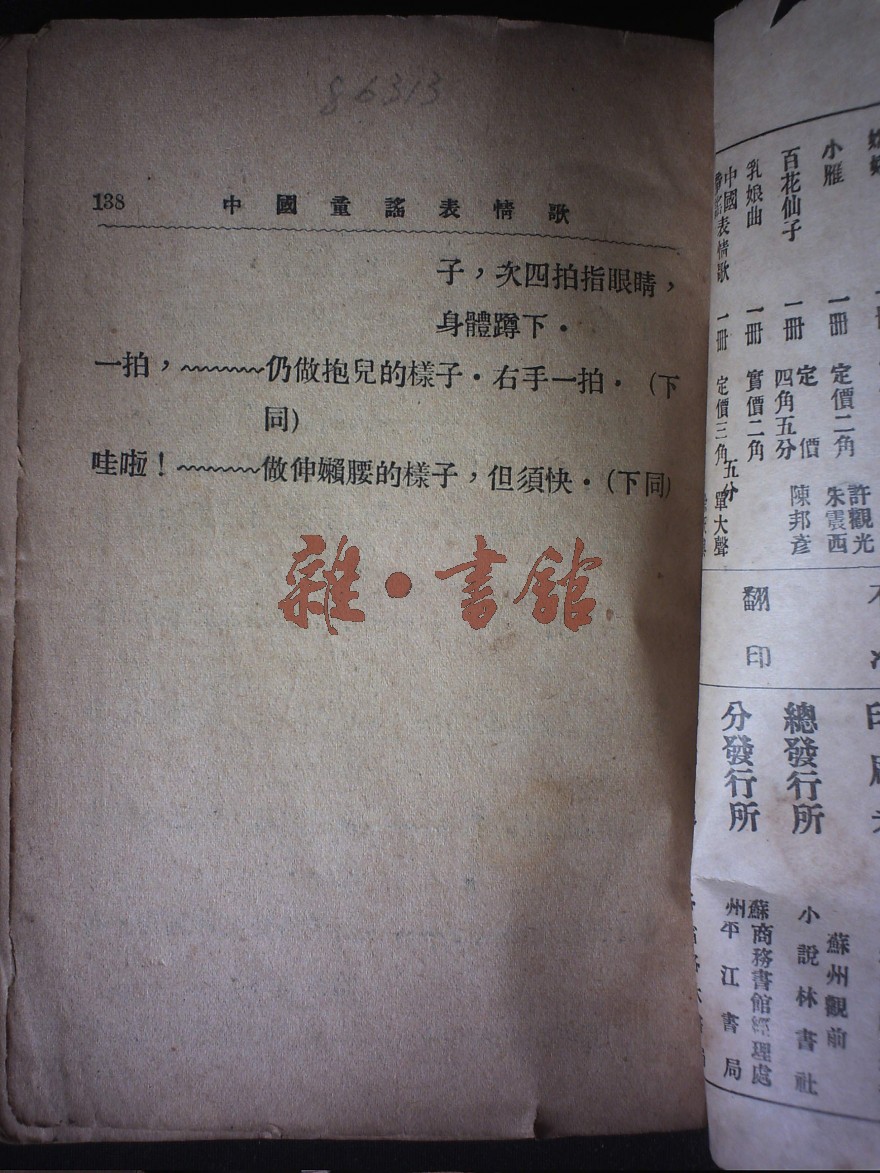 86313
138 中國童謠表情歌
子，次四拍指眼睛，
身體蹲下。
一拍，~~~~~~~仍做抱兒的樣子。右手一拍。（下
同）
哇啦！~~~~~~~做伸嬾腰的樣子，但須快。（下同）
雜·書館
小雁 一冊 定價二角 朱震西
許觀光
百花仙子 一冊 定價
四角五分 陳邦彥
乳娘曲 一冊 實價二角
中國
表情歌 一冊 定價三角五分 單大聲
翻印
總發行所 蘇州觀前
小說林書社
分發行所 蘇州
商務書館經理處
平江書局